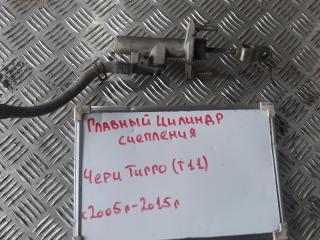 Главный цилиндр
сцепления
Чери Тигго (Т11)
с2005г-2015г